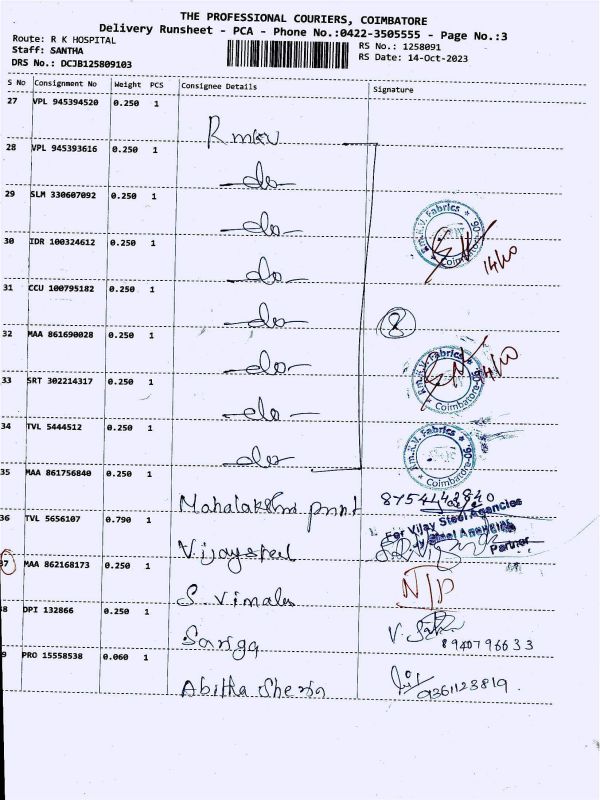 THE PROFESSIONAL COURIERS, COIMBATORE
Delivery Runsheet - PCA - Phone No.:0422-3505555 - Page No.:3
Route: R K HOSPITAL
Staff: SANTHA
DRS No.: DCJB125809103
RS No.: 1258091
RS Date: 14-Oct-2023
S No Consignment No Weight PCS Consignee Details Signature
27 VPL 945394520 0.250 1
Rmkv
28 VPL 945393616 0.250 1
-do-
29 SLM 330607092 0.250 1
-do-
R.m.K.V. Fabrics
Coimbatore
14/10
30 IDR 100324612 0.250 1
-do-
31 CCU 100795182 0.250 1
-do-
8
32 MAA 861690028 0.250 1
-do-
R.m.K.V. Fabrics
Coimbatore
14/10
33 SRT 302214317 0.250 1
-do-
34 TVL 5444512 0.250 1
-do-
R.m.K.V. Fabrics
Coimbatore
35 MAA 861756840 0.250 1
Mahalakshmi print
36 TVL 5656107 0.790 1
Vijaysteel
For Vijay Steel Agencies
Partner
37 MAA 862168173 0.250 1
S. Vimala
N/P
38 DPI 132866 0.250 1
Sariga
8940796633
39 PRO 15558538 0.060 1
Abitha Sherin
9361123819.